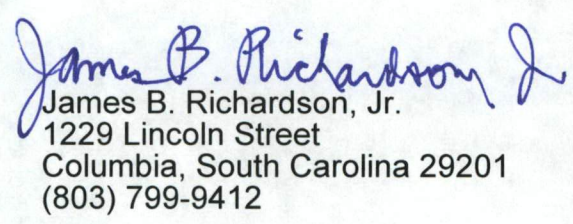 James B. Richardson, Jr.
James B. Richardson, Jr.
1229 Lincoln Street
Columbia, South Carolina 29201
(803) 799-9412